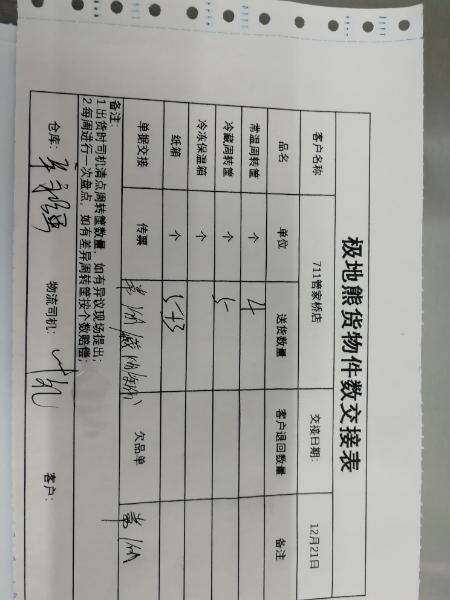 极地熊货物件数交接表
客户名称 711管家桥店 交接日期: 12月21日
品名 单位 送货数量 客户退回数量 备注
常温周转筐 个 4
冷藏周转筐 个
冷冻保温箱 个
纸箱 个
单据交接 传票 欠品单
备注:
1.出货时司机清点周转筐数量,如有异议现场提出;
2.每周进行一次盘点,如有差异周转筐按个数赔偿;
仓库: 物流司机: 客户: